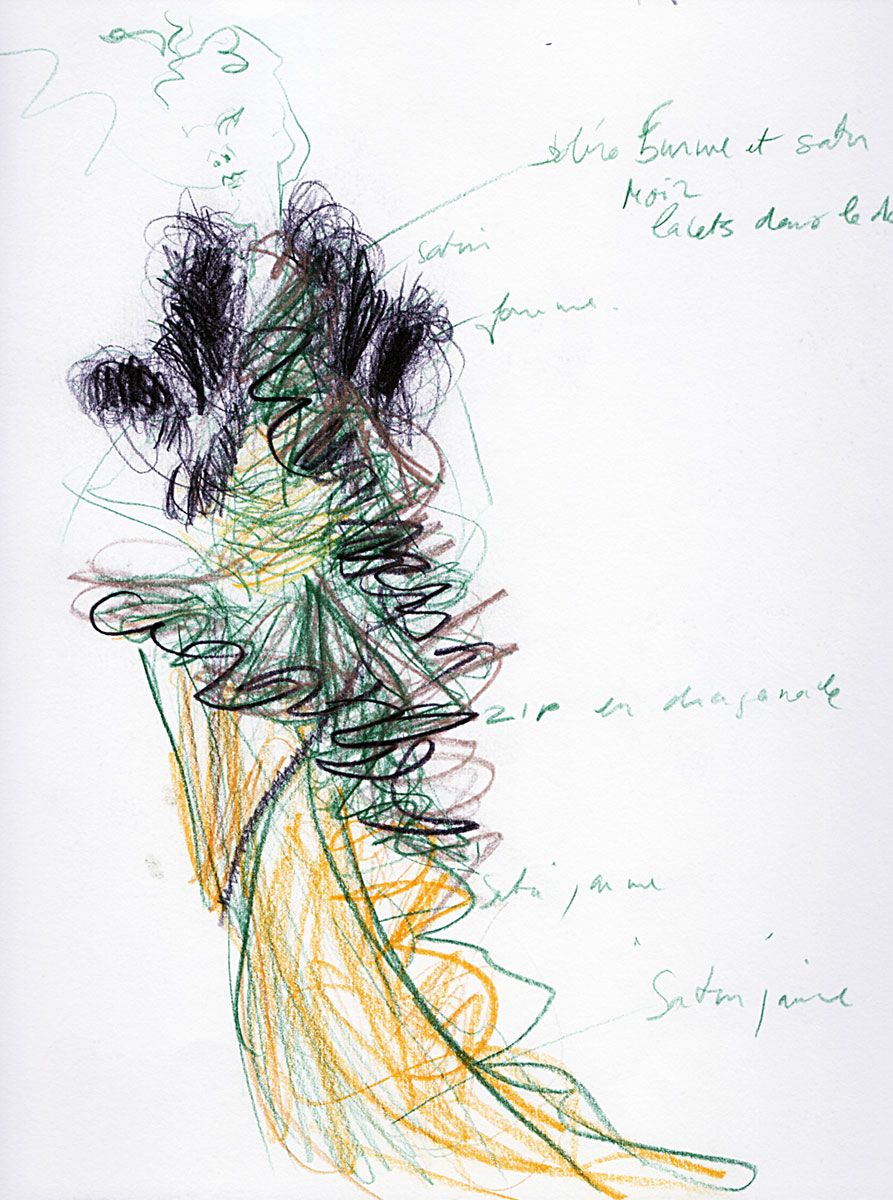 et satin
noir
lacets dans le
satin
zip en diagonale
satin jaune
satin jaune